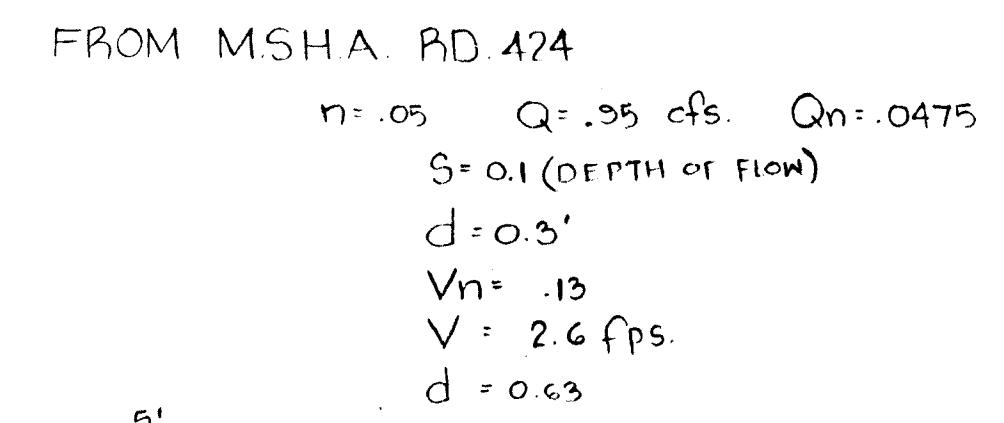 FROM M.S.H.A. RD. 424
n= .05 Q= .95 cfs. Qn= .0475
S= 0.1 (DEPTH OF FLOW)
d = 0.3'
Vn= .13
V = 2.6 fps.
d = 0.63
5'